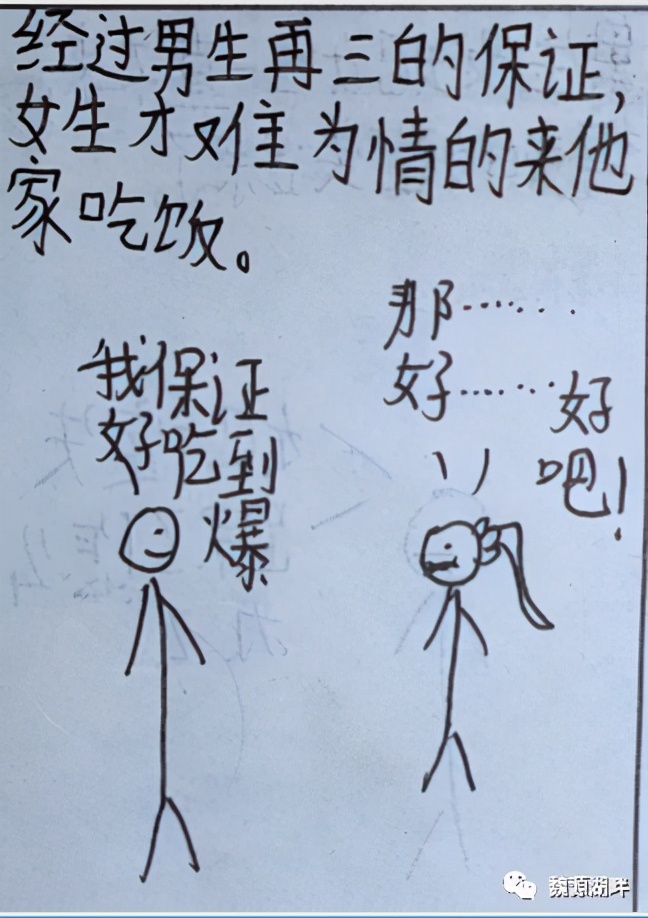 经过男生再三的保证,
女生才难为情的来他
家吃饭。
那……
好……好
吧!
我保证
好吃到
爆
魏頂湖畔